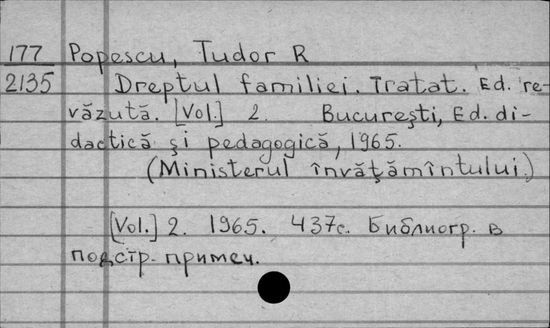 177 Popescu, Tudor R
2135 Dreptul familiei. Tratat. Ed. re-
văzută. [Vol.] 2. Bucureşti, Ed. di-
dactică şi pedagogică, 1965.
(Ministerul învăţămîntului.)
[Vol.] 2. 1965. 437c. Библиогр. в
подстр. примеч.